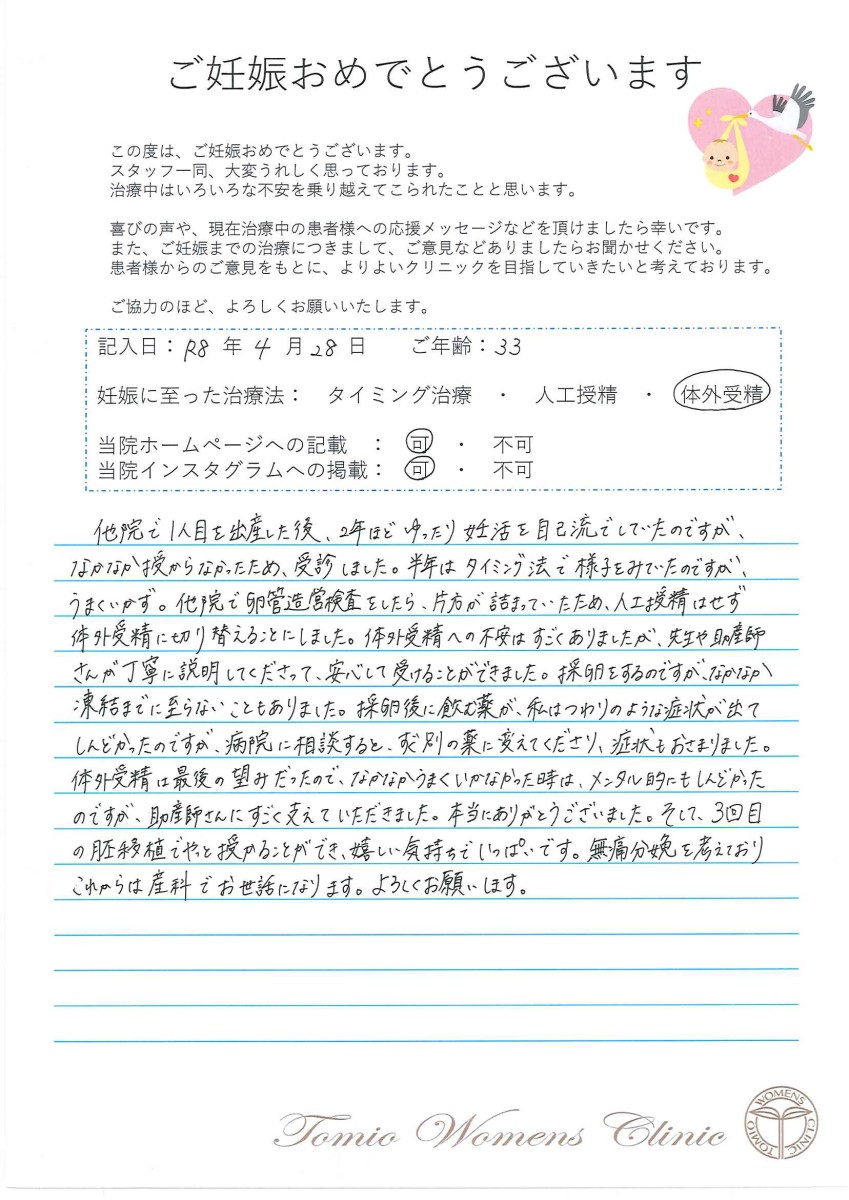 ご妊娠おめでとうございます
この度は、ご妊娠おめでとうございます。
スタッフ一同、大変うれしく思っております。
治療中はいろいろな不安を乗り越えてこられたことと思います。
喜びの声や、現在治療中の患者様への応援メッセージなどを頂けましたら幸いです。
また、ご妊娠までの治療につきまして、ご意見などありましたらお聞かせください。
患者様からのご意見をもとに、よりよいクリニックを目指していきたいと考えております。
ご協力のほど、よろしくお願いいたします。
記入日：R8 年 4 月 28 日　ご年齢：33
妊娠に至った治療法：　タイミング治療　・　人工授精　・　体外受精
当院ホームページへの記載　：　可　・　不可
当院インスタグラムへの掲載：　可　・　不可
他院で1人目を出産した後、2年ほどゆったり妊活を自己流でしていたのですが、
なかなか授からなかったため、受診しました。半年はタイミング法で様子をみていたのですが、
うまくいかず。他院で卵管造営検査をしたら、片方が詰まっていたため、人工授精はせず
体外受精に切り替えることにしました。体外受精への不安はすごくありましたが、先生や助産師
さんが丁寧に説明してくださって、安心して受けることができました。採卵をするのですが、なかなか
凍結までに至らないこともありました。採卵後に飲む薬が、私はつわりのような症状が出て
しんどかったのですが、病院に相談すると、すぐ別の薬に変えてくださり、症状もおさまりました。
体外受精は最後の望みだったので、なかなかうまくいかなかった時は、メンタル的にもしんどかった
のですが、助産師さんにすごく支えていただきました。本当にありがとうございました。そして、3回目
の胚移植でやっと授かることができ、嬉しい気持ちでいっぱいです。無痛分娩を考えており
これからは産科でお世話になります。よろしくお願いします。
Tomio Womens Clinic
TOMIO WOMENS CLINIC